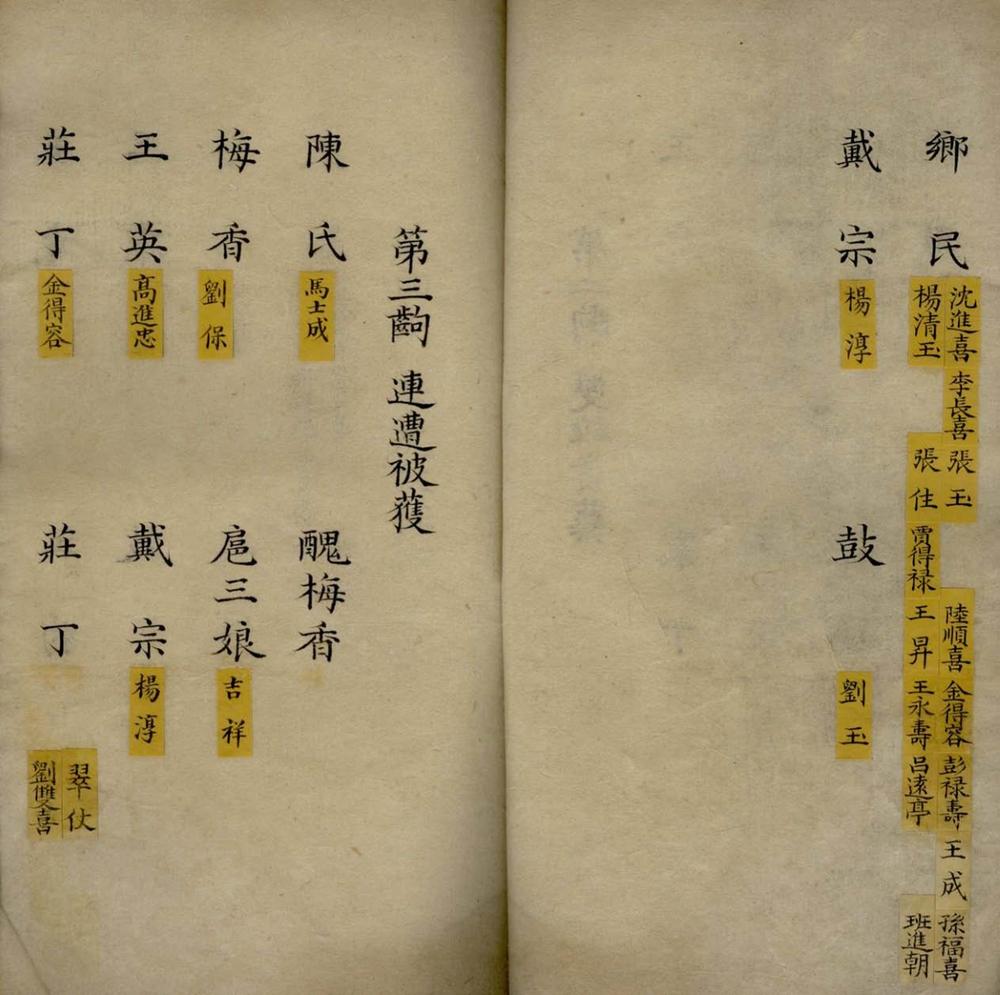 鄉民
沈進喜 李長喜 張玉 陸順喜 金得容 彭禄壽 王成 孫福喜
楊清玉 張住 賈得禄 王昇 王永壽 呂遠亭 班進朝
戴宗 楊淳
鼓 劉玉
第三齣 連遭被獲
陳氏 馬士成
醜梅香
梅香 劉保
扈三娘 吉祥
王英 高進忠
戴宗 楊淳
莊丁 金得容
莊丁
翠仗
劉雙喜